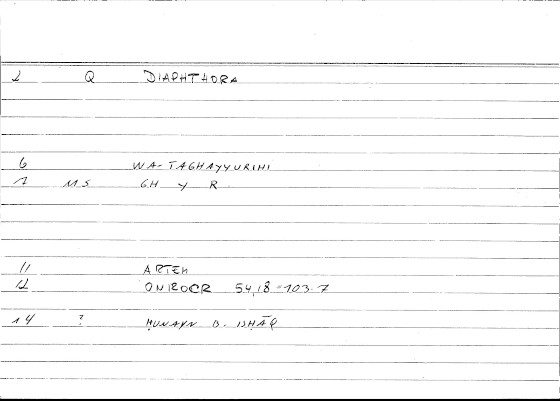 2 Q DIAPHTHORA
6 WA-TAGHAYYURIHI
7 MS GH Y R
11 ARTEM
12 ONIROCR 54,18 = 103.7
14 ? ḤUNAYN B. ISḤĀQ